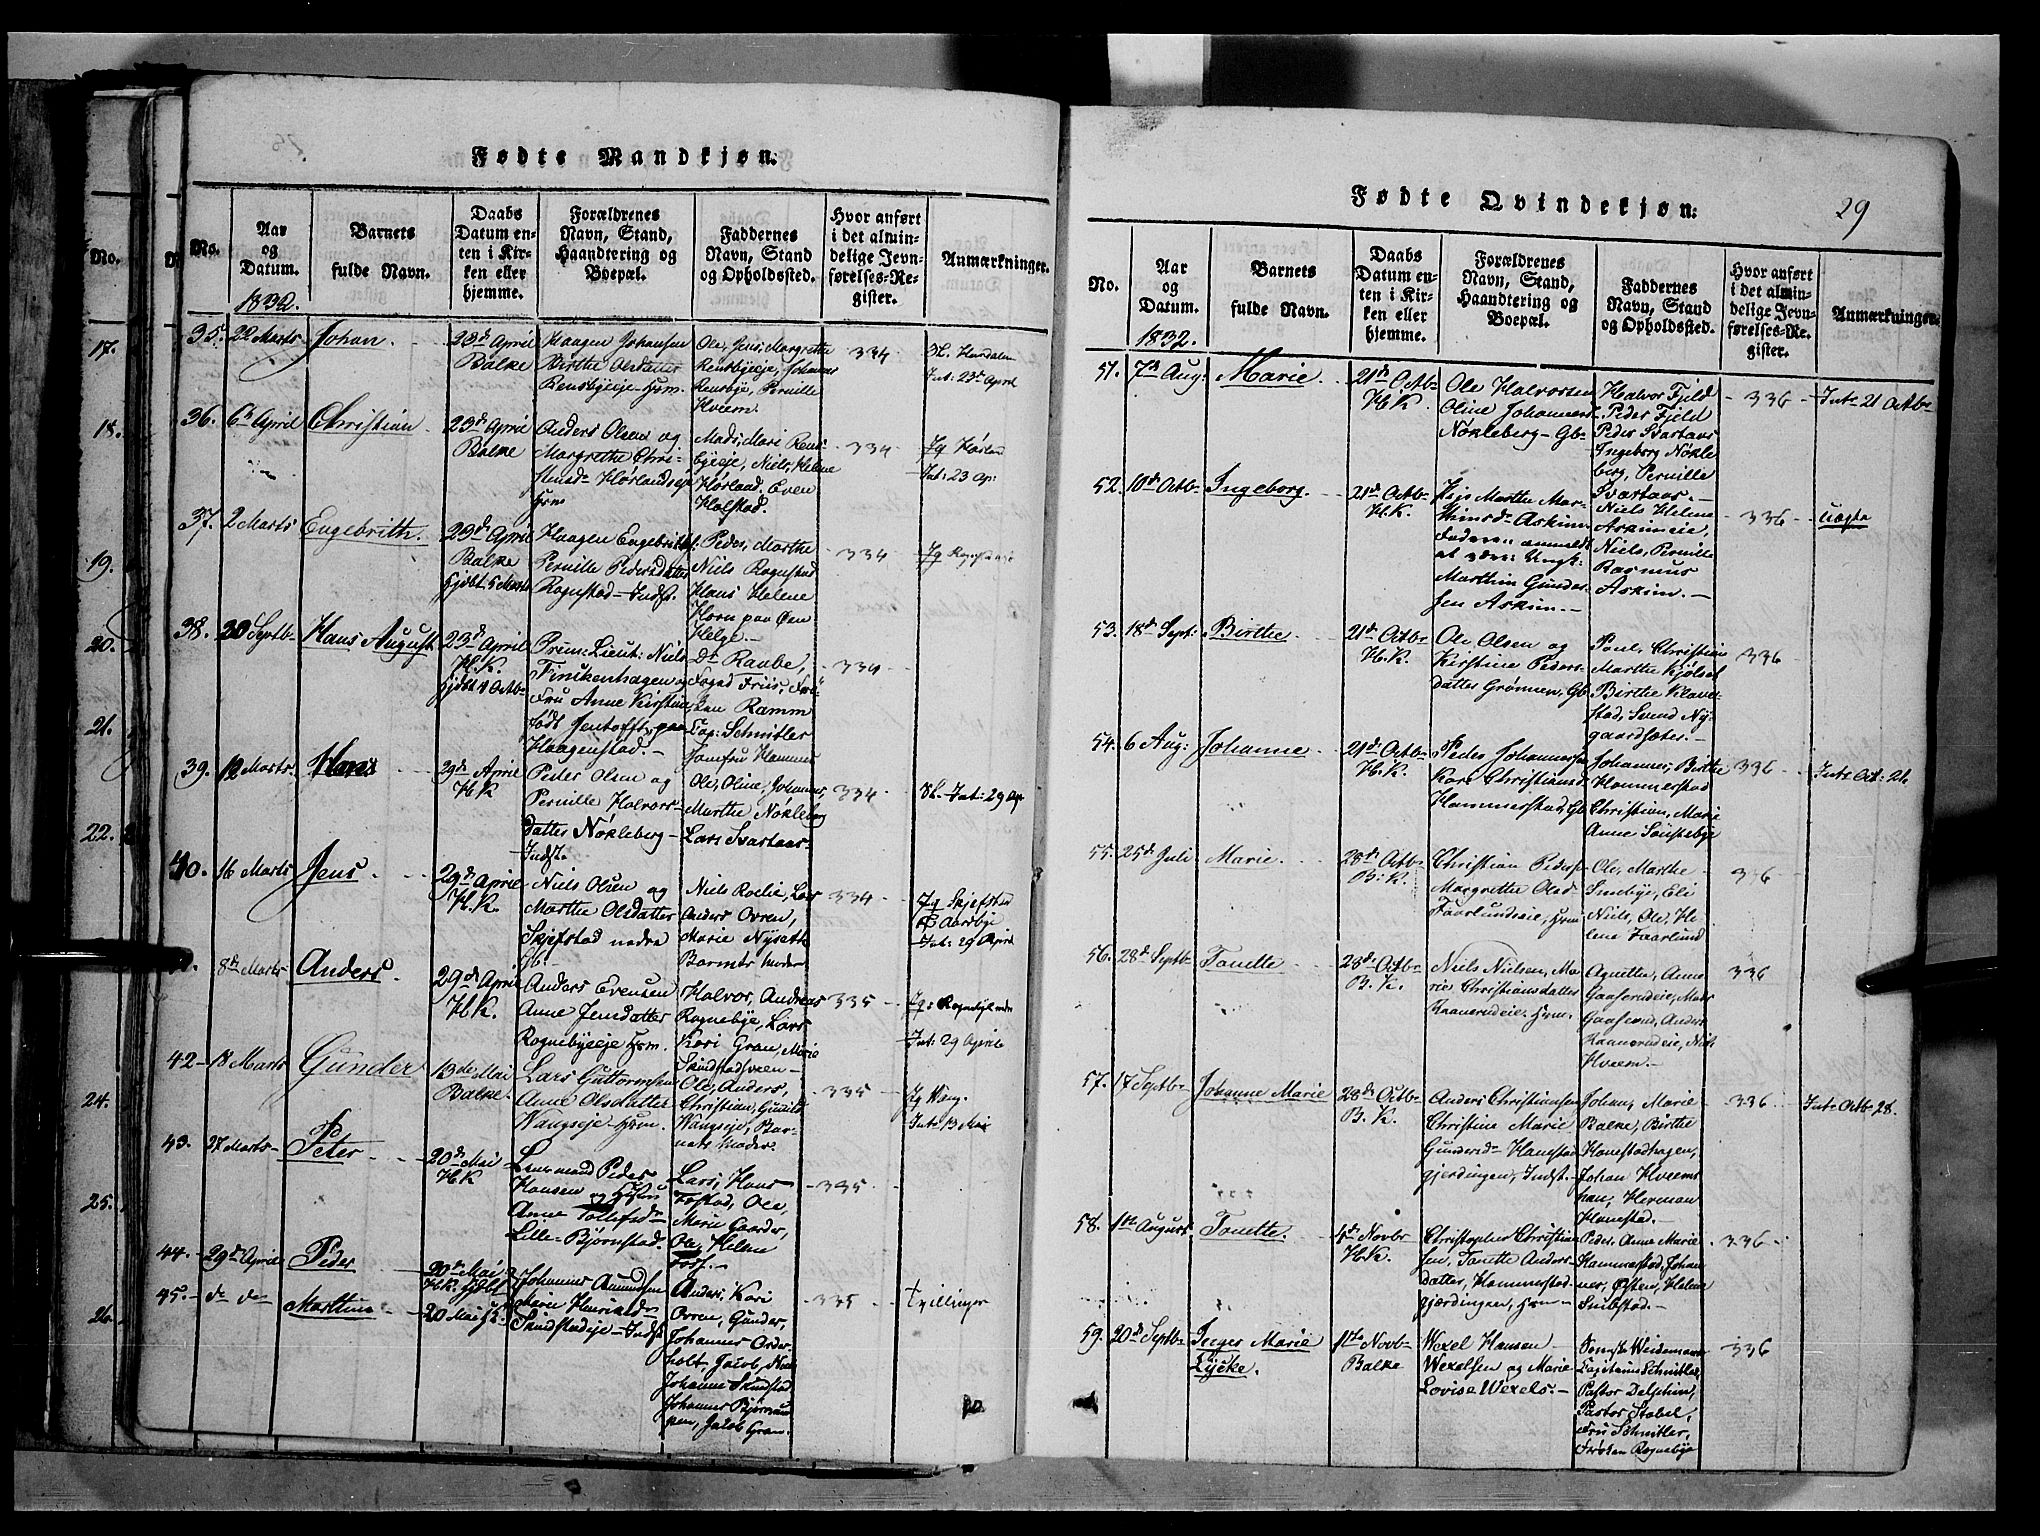 Fødte Mandkjøn.
No.
Aar og Datum.
1832.
Barnets fulde Navn.
Daabs Datum enten i Kirken eller hjemme.
Forældrenes Navn, Stand, Haandtering og Boepæl.
Faddernes Navn, Stand og Opholdssted.
Hvor anført i det almindelige Jevnførelses-Register.
Anmærkninger.
35. 22 Marts Johan. 23d April Balke
Haagen Johansen
Birthe Olsdatter
Rensbyeeje Hsm.
Ole, Jens, Margrethe
Rensbyeeje, Johannes
Rensbye, Pernille
Hveem.
334
Int: 23d April
36. 6te April Christian 23d April Balke
Anders Olsen og
Margrethe Chri-
stensd- Hørlandseje
Hsm
Mads, Mari Rens-
byeeje, Niels, Helene
Hørland, Even
Halstad.
334
Int: 23 Ap:
37. 2 Marts Engebrith. 23d April Balke
Hjdbt 5 Marts
Haagen Engebriths:
Pernille Pedersdatter
Rognstad - Indst.
Peder, Marthe
Niels Rognstad
Hans Helene
Horn paa Øen
Helge.
334
38. 30 Septb. Hans August 23d April H.K.
Hjdbt 1 Octb-
Prem: Lieut: Niels
Finckenhagen og
Fru Anne Kirstine
født Jentofft, paa
Haagenstad.
Dr Raabe,
Foged Friis, Frø-
ken Ramm
Cap: Schnitler
Jomfru Hammer
334
39. 12 Marts Hans 29de April H.K
Peder Olsen og
Pernille Halvors-
datter Nøkleberg -
Indst.
Ole, Oline, Johannes,
Marthe Nøkleberg
Lars Svartaas.
334
Int: 29 Ap
40. 16 Marts Jens 29de April H.K.
Niels Olsen og
Marthe Olsdatter
Skjefstad nedre
Gb.
Niels Roelie, Lars
Anders Ovren,
Marie Nyseth
Barnets Moder
334
Jg Skjefstad
Int: 29 April
8de Marts Anders 29de April H.K.
Anders Evensen
Anne Jensdatter
Rognebyeeje Hsm.
Halvor, Andreas
Rognebye, Lars
Kari Gran, Marie
Skindstadsveen
335
Int: 29 April
42 18 Marts Gunder 13de Mai Balke.
Lars Guttormsen
Anne Olsdatter
Wangseje Hsm.
Ole, Anders,
Christian, Gunild
Wangseje, Bar-
nets Moder.
335
Jg Wang.
Int: 13 Mai
43. 27 Marts Peter 20de Mai H.K
Lensmand Peder
Hansen og Hustru
Anne Tollefsdr
Lille-Bjørnstad.
Lars, Hans
Fostad, Ole,
Marie Gaarder,
Ole, Helene
Foss.
335
44. 29d April Peder 20de Mai
45. d- de- Marthine 20 Mai
Johannes Amundsen
Marie Henriksdr
Skindstadeje - Indst.
Anders, Kari
Ovren, Gunder,
Johannes Order-
holt, Jacob,
Johanne Skindstad
Johannes Bjørnsun-
pen, Jacob Gran.
335
tvillinger
29
Fødte Qvindekjøn.
No.
Aar og Datum.
1832.
Barnets fulde Navn.
Daabs Datum enten i Kirken eller hjemme.
Forældrenes Navn, Stand, Haandtering og Boepæl.
Faddernes Navn, Stand og Opholdssted.
Hvor anført i det almindelige Jevnførelses-Register.
Anmærkninger.
51. 7de Aug: Marie 21de Octb- H.K.
Ole Halvorsen
Oline Johannesd
Nøkleberg - Gb-
Halvor Fjeld
Peder Fjeld
Peder Svartaas
Ingeborg Nøkle-
berg, Pernille
Svartaas.
336
Int: 21 Octbr
52. 10d Octb- Ingeborg. 21de Octb- H.K.
Pige Marthe Mar-
thinsd- Askim.
Fader: anmeldt
at være: Ungk:
Marthin Gunder-
sen Askim.
Niels Helene
Askimeie,
Niels, Pernille
Rasmus
Askim.
336
Uægte
53. 18d Sept: Birthe 21de Octb- H.K.
Ole Olsen og
Kirstine Peders-
datter Grønnen, Gb.
Poul, Christian
Marthe Kjølset
Birthe Klave-
stad, Svend Ny-
gaardsæter.
336
54. 6 Aug: Johanne 21de Octb- H.K.
Peder Johannessen
Kari Christiansd
Hammerstad Gb
Johannes, Birthe
Hammerstad
Christian, Marie
Anne Soustebye
336
Int: Oct: 21.
55. 25d Juli Marie 28de Octb- B.K.
Christian Peders
Margrethe Olsd
Faarlundseie, Hsm
Ole, Marthe
Smebye, Eli
Niels, Ole, He-
lene Faarlund
336
56. 28d Septb- Tonette 28de Octb- B.K.
Niels Nielsen, Ma-
rie Christiansdatter
Raanerudeie Hsm.
Agnitte, Anne
Gaaserudeie, Mads
Gaaserud, Anders
Raanerudeie, Niels
Hveem.
336
57. 17 Septb- Johanne Marie 28de Octb- B.K.
Anders Christiansen
Christine Marie
Gundersd- Hanestad
gjerdingen, Indst.
Johan, Marie
Balke, Birthe
Hanestadhagen,
Johan Hveems-
han, Herman
Hanestad.
336
Int: Octb. 28.
58. 1te August Tonette. 4de Novbr H.K.
Christopher Christian-
sen, Tonette Anders-
datter, Hammerstad-
gjærdingen, Hsm
Peder, Anne Marie
Hammerstad, Johan-
nes, Østen, Helene
Snibstad.
336
59. 20d Septb- Inger Marie
Lycke.
11te Novb- Balke
Wexel Hansen
Wexelsen og Marie
Lovise Wexels.
Weidemann
Capitain Schnitler,
Pastor Delphin,
Pastor Stabel,
Fru Schnitler,
Frøken Rognebye
336
17.
18.
19.
20.
21.
22.
24.
25.
26.